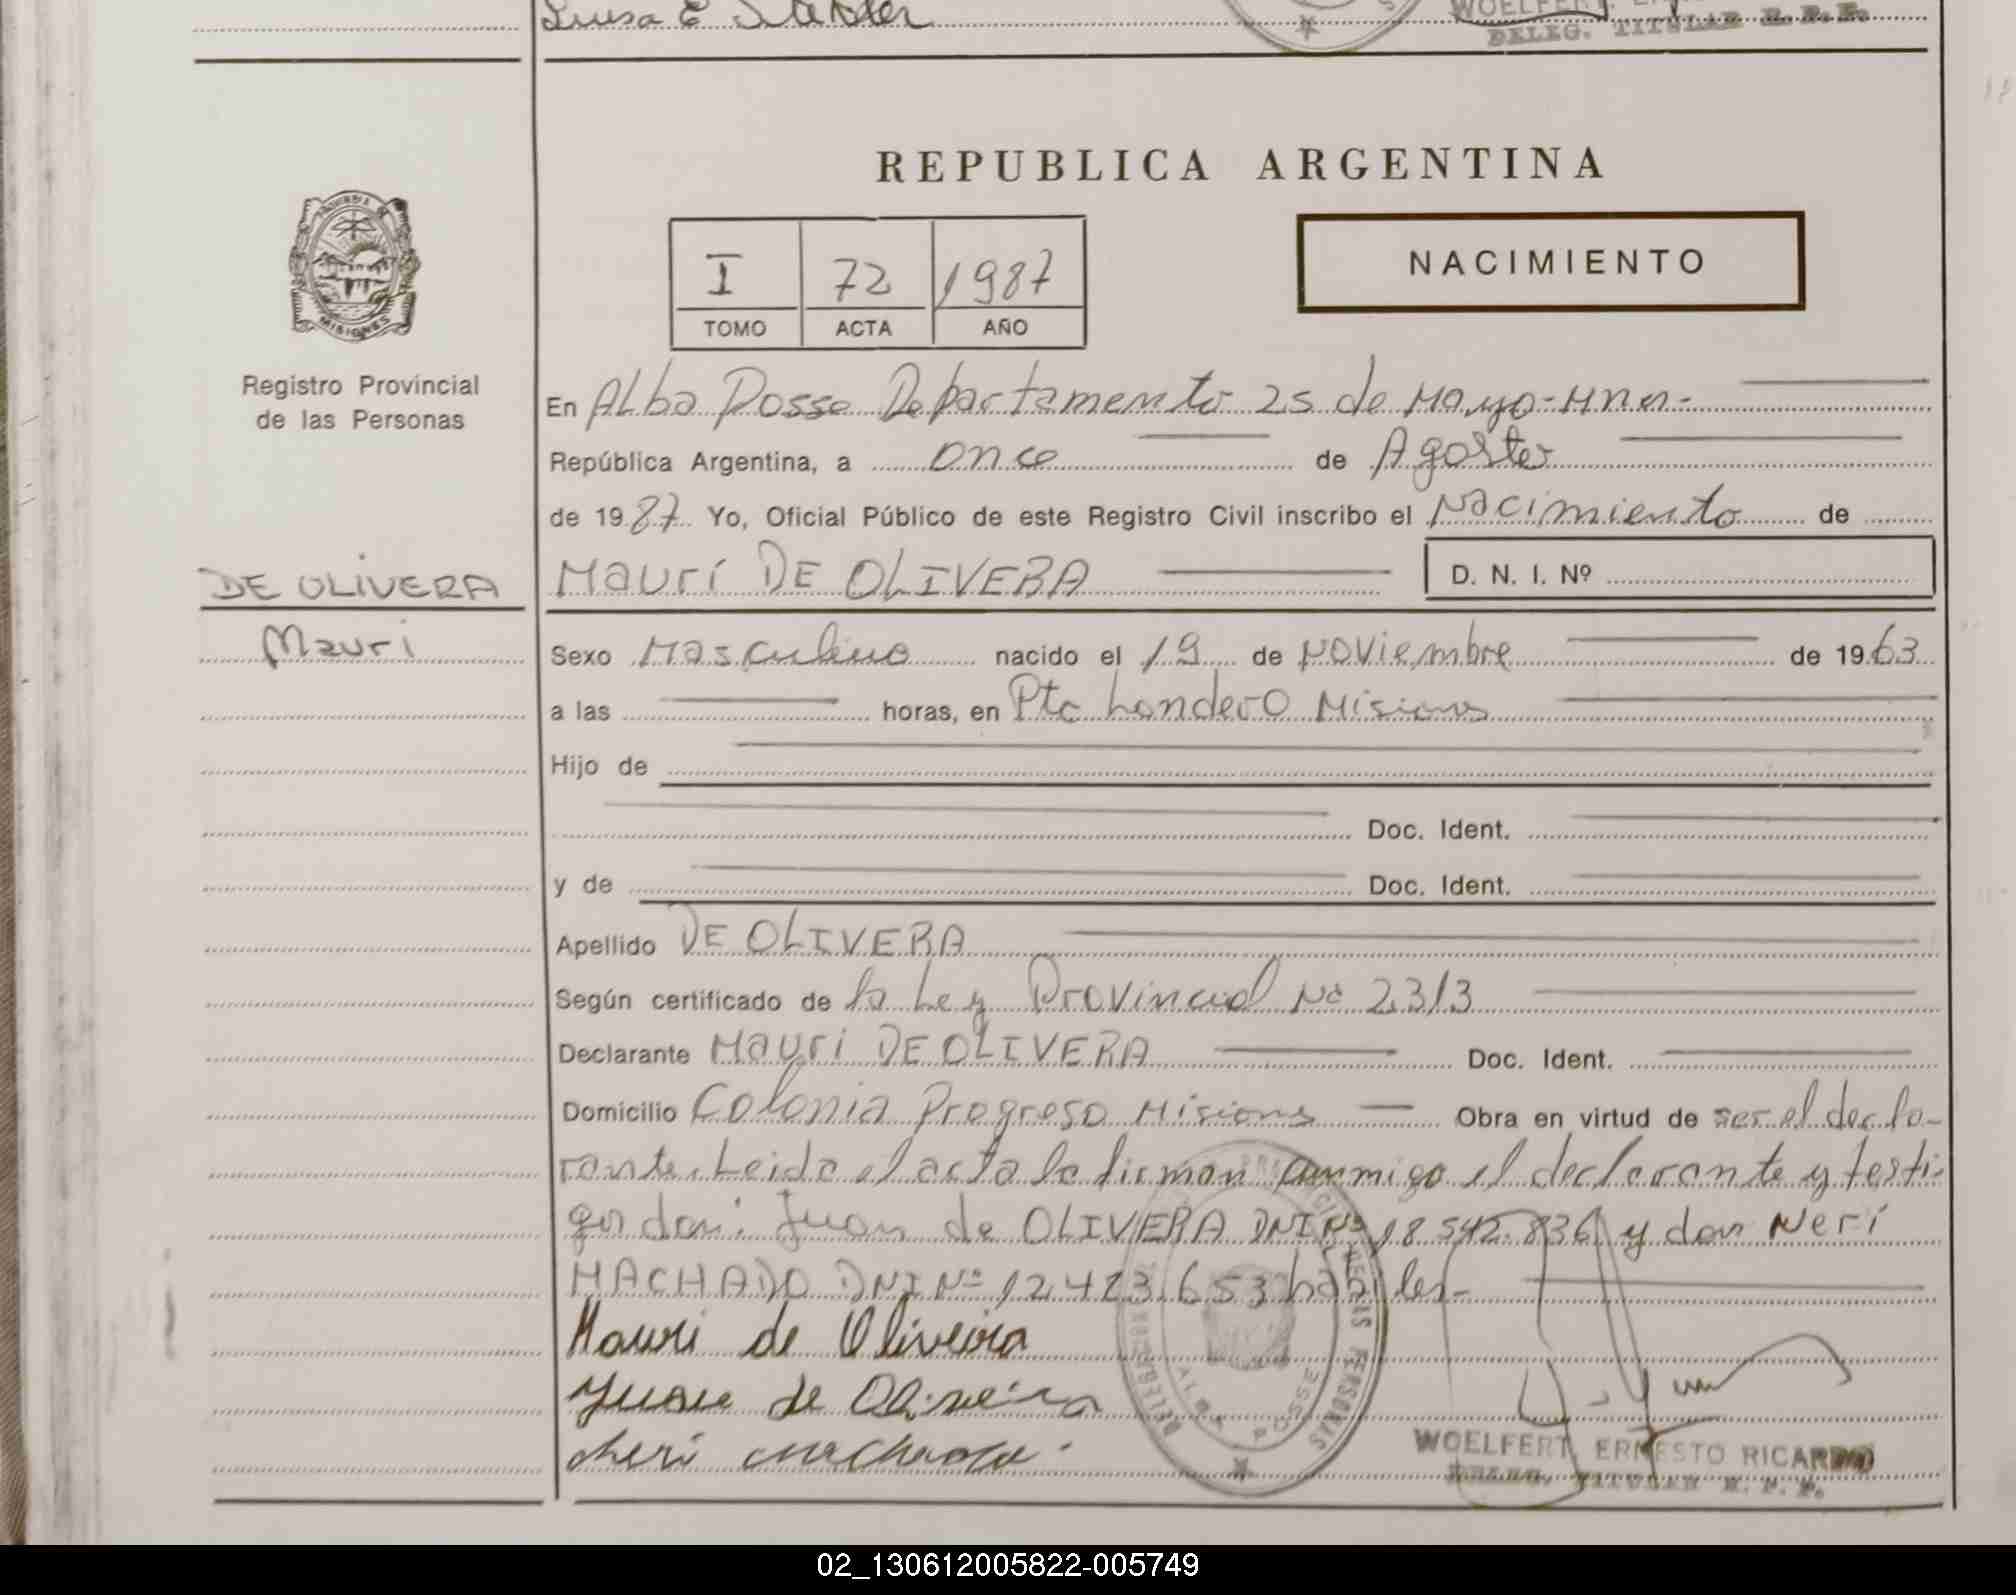 Luisa E
WOELFERT
DELEG. TITULAR R. P. P.
REPUBLICA ARGENTINA
PROVINCIA DE
MISIONES
I 72 1987
TOMO ACTA AÑO
NACIMIENTO
Registro Provincial
de las Personas
En ALba Posse Departamento 25 de Mayo-Mnes-
República Argentina, a once de Agosto
de 1987 Yo, Oficial Público de este Registro Civil inscribo el Nacimiento de
DE OLIVERA
Mauri DE OLIVERA D. N. I. Nº
Mauri
Sexo Masculino nacido el 19 de Noviembre de 1963
a las horas, en Pto Londero Misiones
Hijo de
Doc. Ident.
y de Doc. Ident.
Apellido DE OLIVERA
Según certificado de la Ley Provincial Nº 2313
Declarante Mauri DE OLIVERA Doc. Ident.
Domicilio Colonia Progreso Misiones Obra en virtud de ser el decla-
rante. Leida el acta la firman conmigo el declarante y testi-
gos don: Juan de OLIVERA DNI Nº 18.542.836 y don Neri
MACHADO DNI Nº 12.423.653 habiles-
Mauri de Oliveira
Juan de Oliveira
Neri Machado
ALBA POSSE
WOELFERT, ERNESTO RICARDO
DELEG. TITULAR R. P. P.
02_130612005822-005749